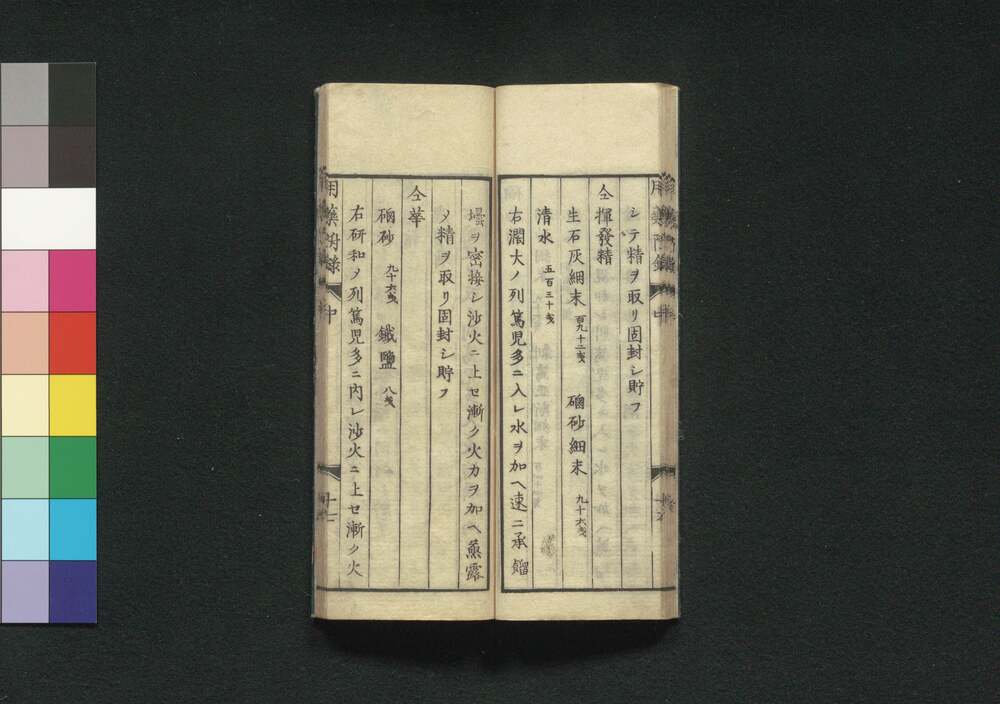 シテ精ヲ取リ固封シ貯フ
仝揮發精
生石灰細末 百九十二戔 硇砂細末 九十六戔
清水 五百三十戔
右濶大ノ列篤兒多ニ入レ水ヲ加ヘ速ニ承餾
壜ヲ密接シ沙火ニ上セ漸ク火力ヲ加ヘ蒸露
メ精ヲ取リ固封シ貯フ
仝華
硇砂 九十六戔 鐵鹽 八戔
右研和メ列篤児多ニ內レ沙火ニ上セ漸ク火
用藥附録 中